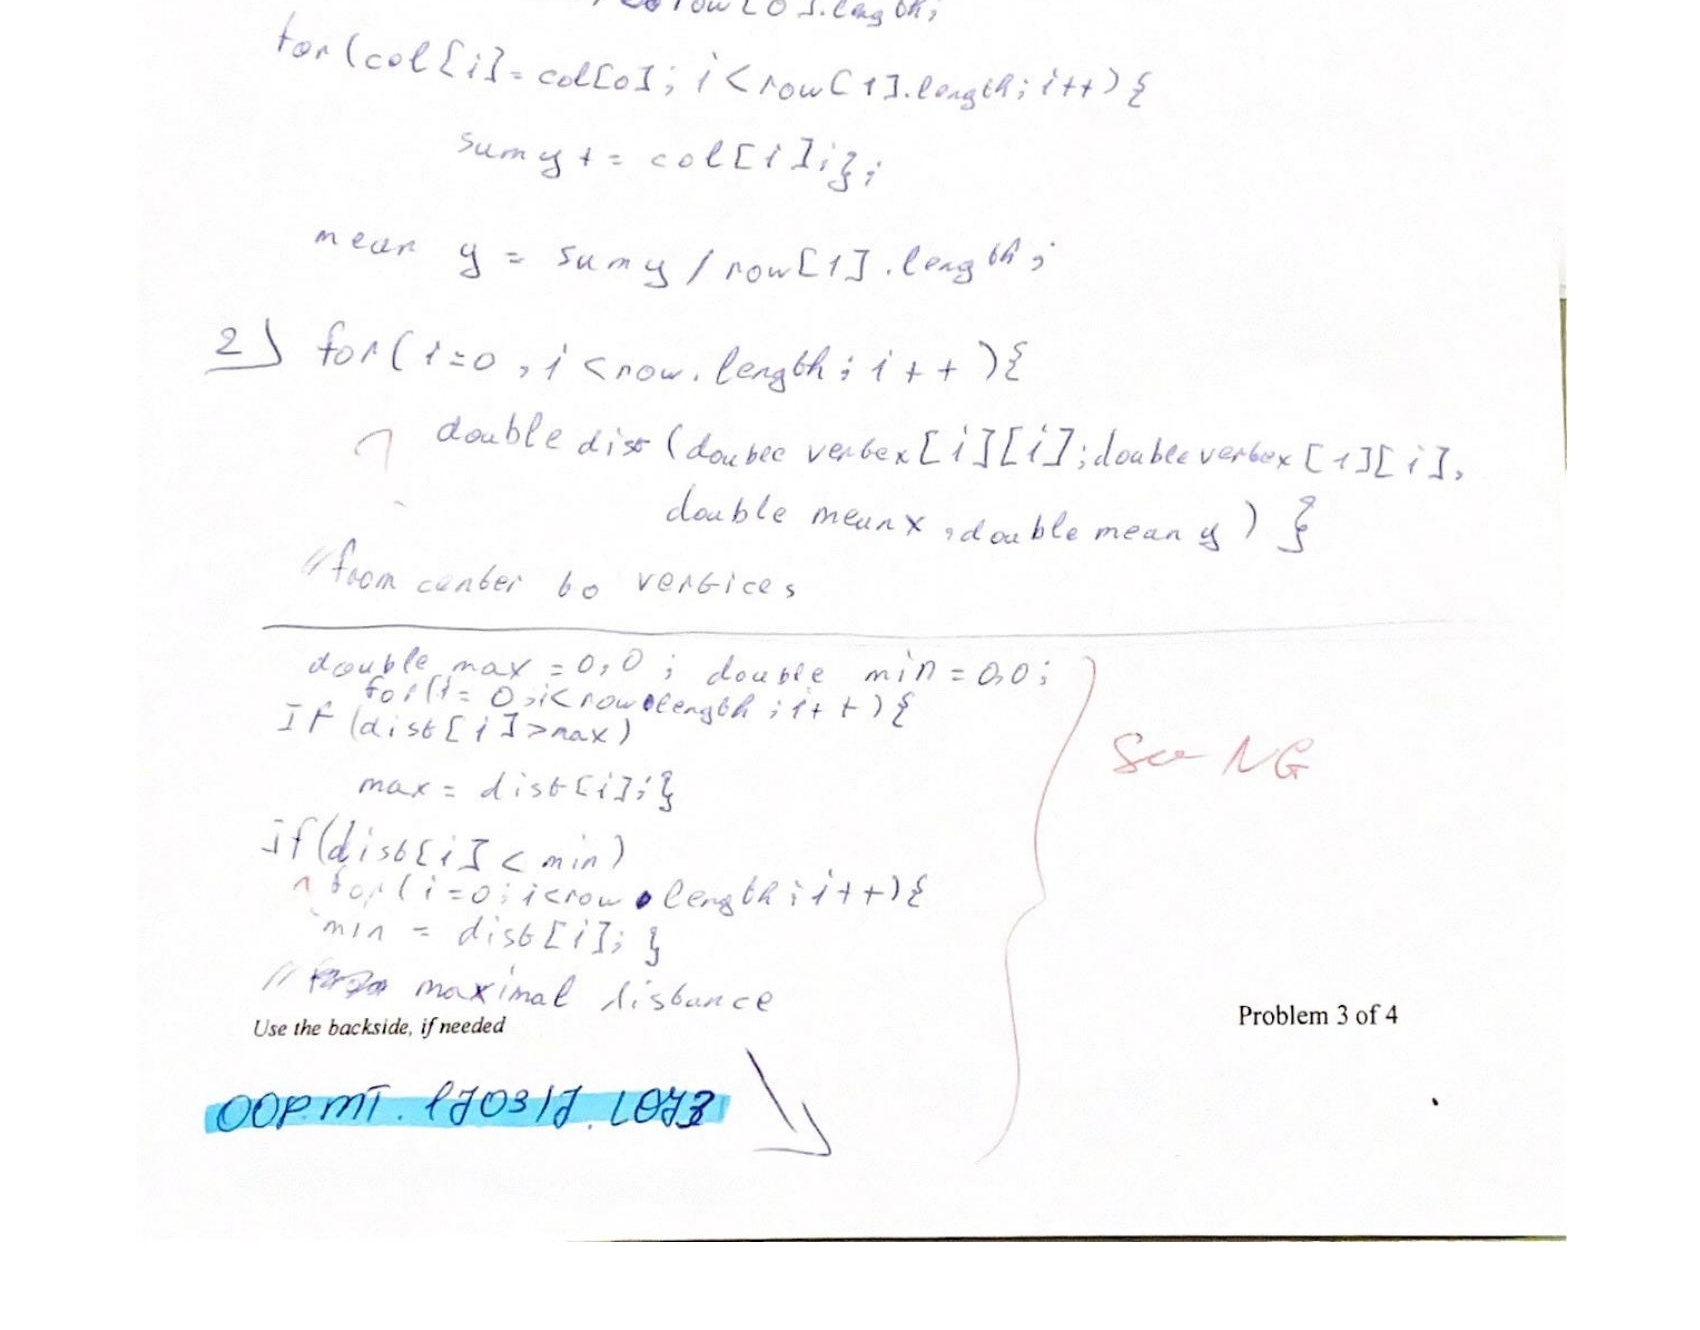 row[0].length;
for(col[i]=col[0]; i<row[1].length; i++){
sumy += col[i];};
mean y = sumy/row[1].length;
2) for(i=0, i<row.length; i++){
double dist(double vertex[i][i]; double vertex[1][i],
double meanx, double mean y) }
//from center to vertices
double max = 0,0; double min = 0,0;
for(i= 0; i<row.length; i++){
If (dist[i]>max)
max = dist[i];}
if(dist[i] < min)
for(i=0; i<row.length; i++){
min = dist[i]; }
// maximal distance
NG
Use the backside, if needed
Problem 3 of 4
OOP.MT.